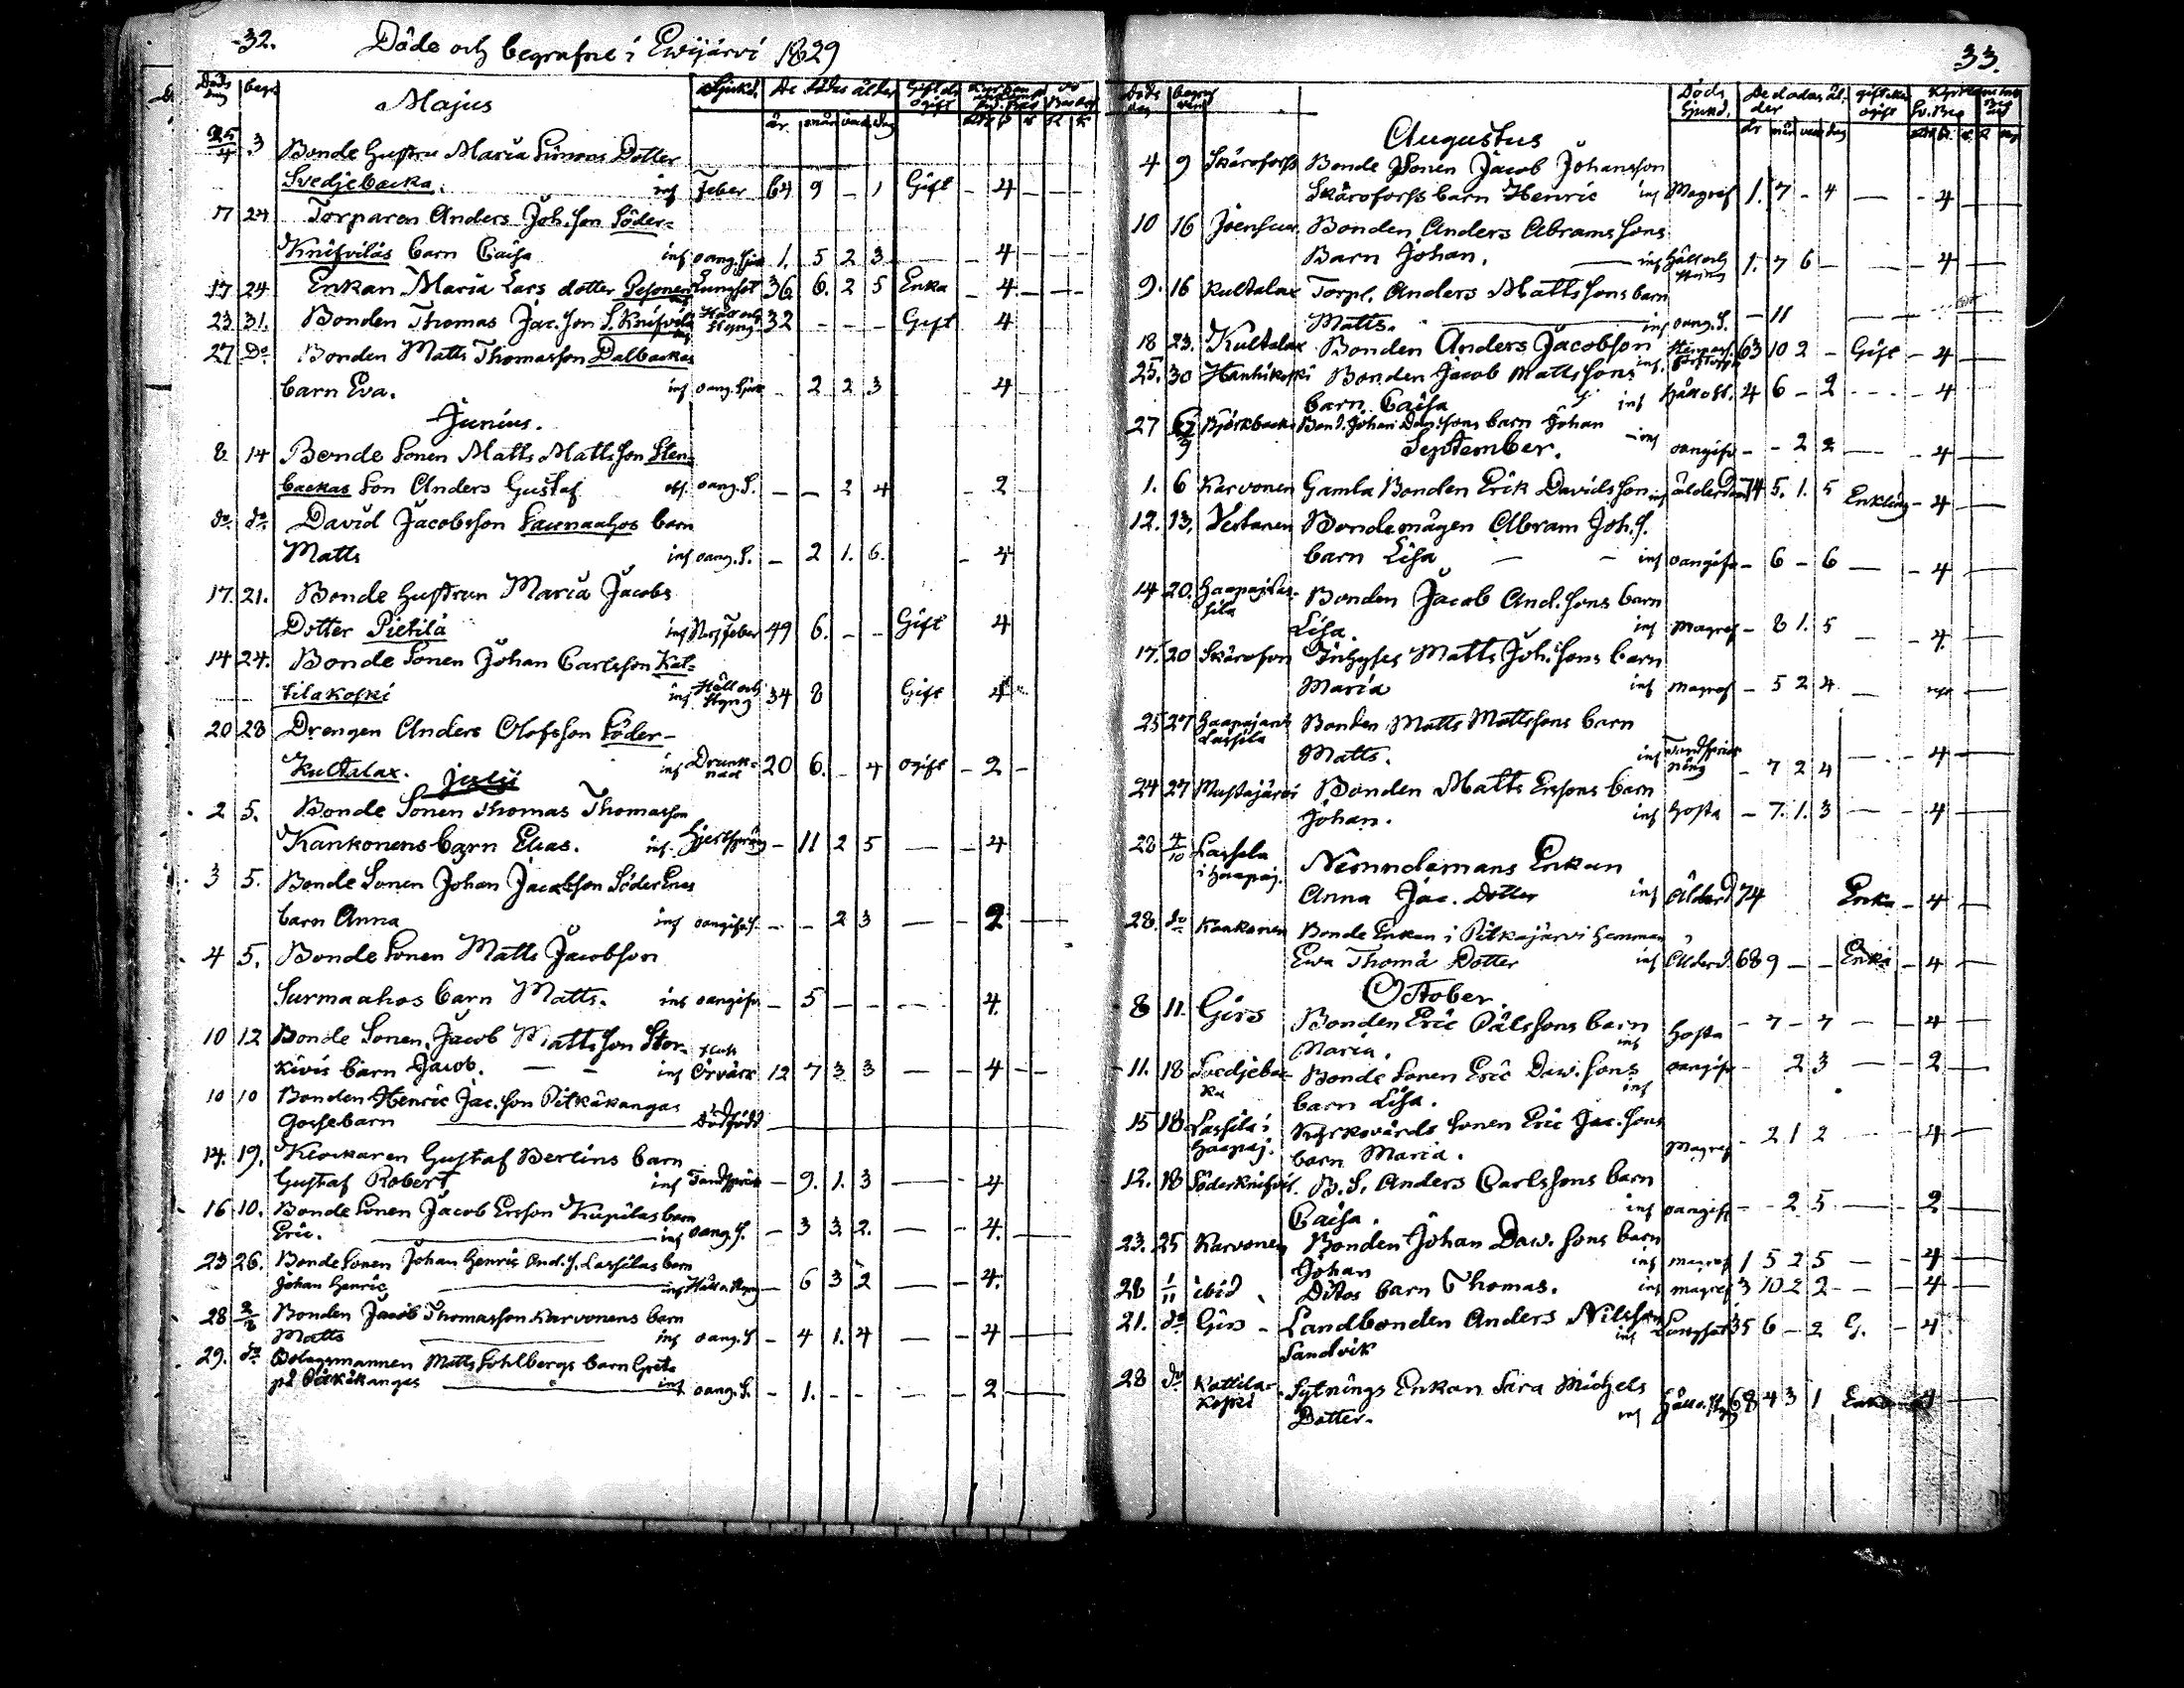 32. Döde och begrafne i Ewijärvi 1829
Döds dag begr. Majus Sjukd. De dödas ålder Gift el. ogift
år mån veck dag
25/4 3 Bonde Hustru Maria Simons Dotter
Svedjebacka. inf Feber 64 9 - 1 Gift - 4 - - -
17 24 Torparen Anders Joh.son Söder-
Knifvilas barn Caisa inf oang. sjuk 1. 5 2 3 - 4 -
17 24 Enkan Maria Lars dotter Pesonen Lungsot 36 6. 2 5 Enka - 4 - -
23 31. Bonden Thomas Jac.son S. Knifvila Håll och Styng 32 - - - Gift 4
27 Do Bonden Matts Thomasson Dalbackas
barn Eva. inf oang. sjuk - 2 2 3 4
Junius.
8 14 Bonde Sonen Matts Mattsson Sten-
backas Son Anders Gustaf oang. S. - - 2 4 - 2 -
do do David Jacobsson Saunaahos barn
Matts inf oang. S. - 2 1. 6. - 4
17. 21. Bonde Hustrun Maria Jacobs
Dotter Pietilä inf Feber 49 6. - - Gift 4
14 24. Bonde Sonen Johan Carlsson Kat-
tilakoski inf Håll och Styng 34 8 Gift 4
20 28 Drengen Anders Olofsson Söder-
Kultalax. inf Drunk-nad 20 6. - 4 ogift - 2 -
Julii
2 5. Bonde Sonen Thomas Thomasson
Kankonens barn Elias. inf. Hjertspräng - 11 2 5 - - 4
3 5. Bonde Sonen Johan Jacobson Söder
barn Anna inf oangifs. - - 2 3 - - 2 -
4 5. Bonde Sonen Matts Jacobson
Surmaahos barn Matts. inf oangifv - 5 - - - 4.
10 12 Bonde Sonen Jacob Mattsson Stor-
kivis barn Jacob. - - inf Örvärk 12 7 3 3 - - 4 - -
10 10 Bonden Henric Jac.son Pitkäkangas
Gossebarn Dödfödd
14. 19. Klockaren Gustaf Berlins barn
Gustaf Robert inf Tandsprick - 9. 1. 3 - - 4
16 10. Bonde Sonen Jacob Ersson Kupilas barn
Eric. inf oang. S. - 3 3 2. - - 4.
23 26. Bonde Sonen Johan Henric And. S. Lassilas barn
Johan Henric inf Håll o. Styng - 6 3 2 - 4.
28 2/8 Bonden Jacob Thomasson Karvonens barn
Matts inf oang. S - 4 1. 4 - - 4 -
29. do Bolagsmannen Matts Sohlbergs barn Greta
på Pitkäkangas inf oang. S. - 1. - - - - 2 -
33.
Döds dag begrof Döds Sjukd. De dödas ål-der gift eller ogift
år mån vec dag
Augustus
4 9 Skäroforss Bonde Sonen Jacob Johansson
Skäroforss barn Henric inf Magref 1. 7 - 4 - - 4 -
10 16 Joensuu Bonden Anders Abrams Sons
Barn Johan. - inf Håll och Styng 1. 7 6 - - - 4 -
9. 16 Kultalax Torp. Anders Matts Sons barn
Matts. inf oang. S. - 11
18 23. Kultalax Bonden Anders Jacobson inf. 63 10 2 - Gift - 4 -
25. 30 Hanhikoski Bonden Jacob Matts Sons
barn Caisa inf Håll o St. 4 6 - 2 - - - 4
27 6/9 Björkbacka Bond. Johan Dan.sons barn Johan - inf oangifv - - 2 2 - - 4 -
September.
1. 6 Karvonen Gamla Bonden Erik Davidsson inf ålderdom 74 5. 1. 5 Enkling - 4 -
12. 13. Vertanen Bondemågen Abram Joh. S.
barn Lisa - - inf oangifv - 6 - 6 - - 4 -
14 20. Haapajärv-sila Bonden Jacob And. Sons barn
Lisa. inf Magref - 8 1. 5 - - 4. -
17. 20 Skärofors Inhyses Matts Joh. Sons barn
Maria inf Magref - 5 2 4 -
25 27 Haapajärvi Lassila Bonden Matts Mattsons barn
Matts. inf Tandsprick-ning - 7 2 4 - - 4 -
24 27 Mustajärvi Bonden Matts Erssons barn
Johan. inf Hosta - 7. 1. 3 - - 4 -
28 4/10 Lassila i Haapaj. Nemndemans Enkan
Anna Jac. Dotter inf Ålderd 74 Enka - 4 -
28. do Kankonen Bonde Enkan i Pitkajärvi hemman
Ewa Thomä Dotter inf Ålderd. 68 9 - - Enka - 4 -
October.
8 11. Girs Bonden Eric Pålssons barn
Maria. inf Hosta - 7 - 7 - - 4 -
11. 18 Svedjebac-ka Bonde Sonen Eric Daw. Sons
barn Lisa. inf oangifv - 2 3 - - 2 -
15 18 Lassila i Haapaj. Kyrkovärds Sonen Eric Jac. Sons
barn Maria. Magref - 2 1 2 - - 4 -
12. 18 Söderknifvil. B. S. Anders Carlssons barn
Caisa. inf oangift - - 2 5 - - 2 -
23. 25 Karvonen Bonden Johan Daw. Sons barn
Johan inf magref 1 5 2 5 - - 4 -
28 1/11 ibid Ditos barn Thomas. inf magref 3 10 2 2 - - 4 -
21. do Girs - Landbonden Anders Nilsson
Sandvik inf Lungsot 35 6 - 2 G. - 4
28 do Kattila-koski Sytnings Enkan Sara Michels
Dotter. inf Håll o. Styng 68 4 3 1 Enka 4 -